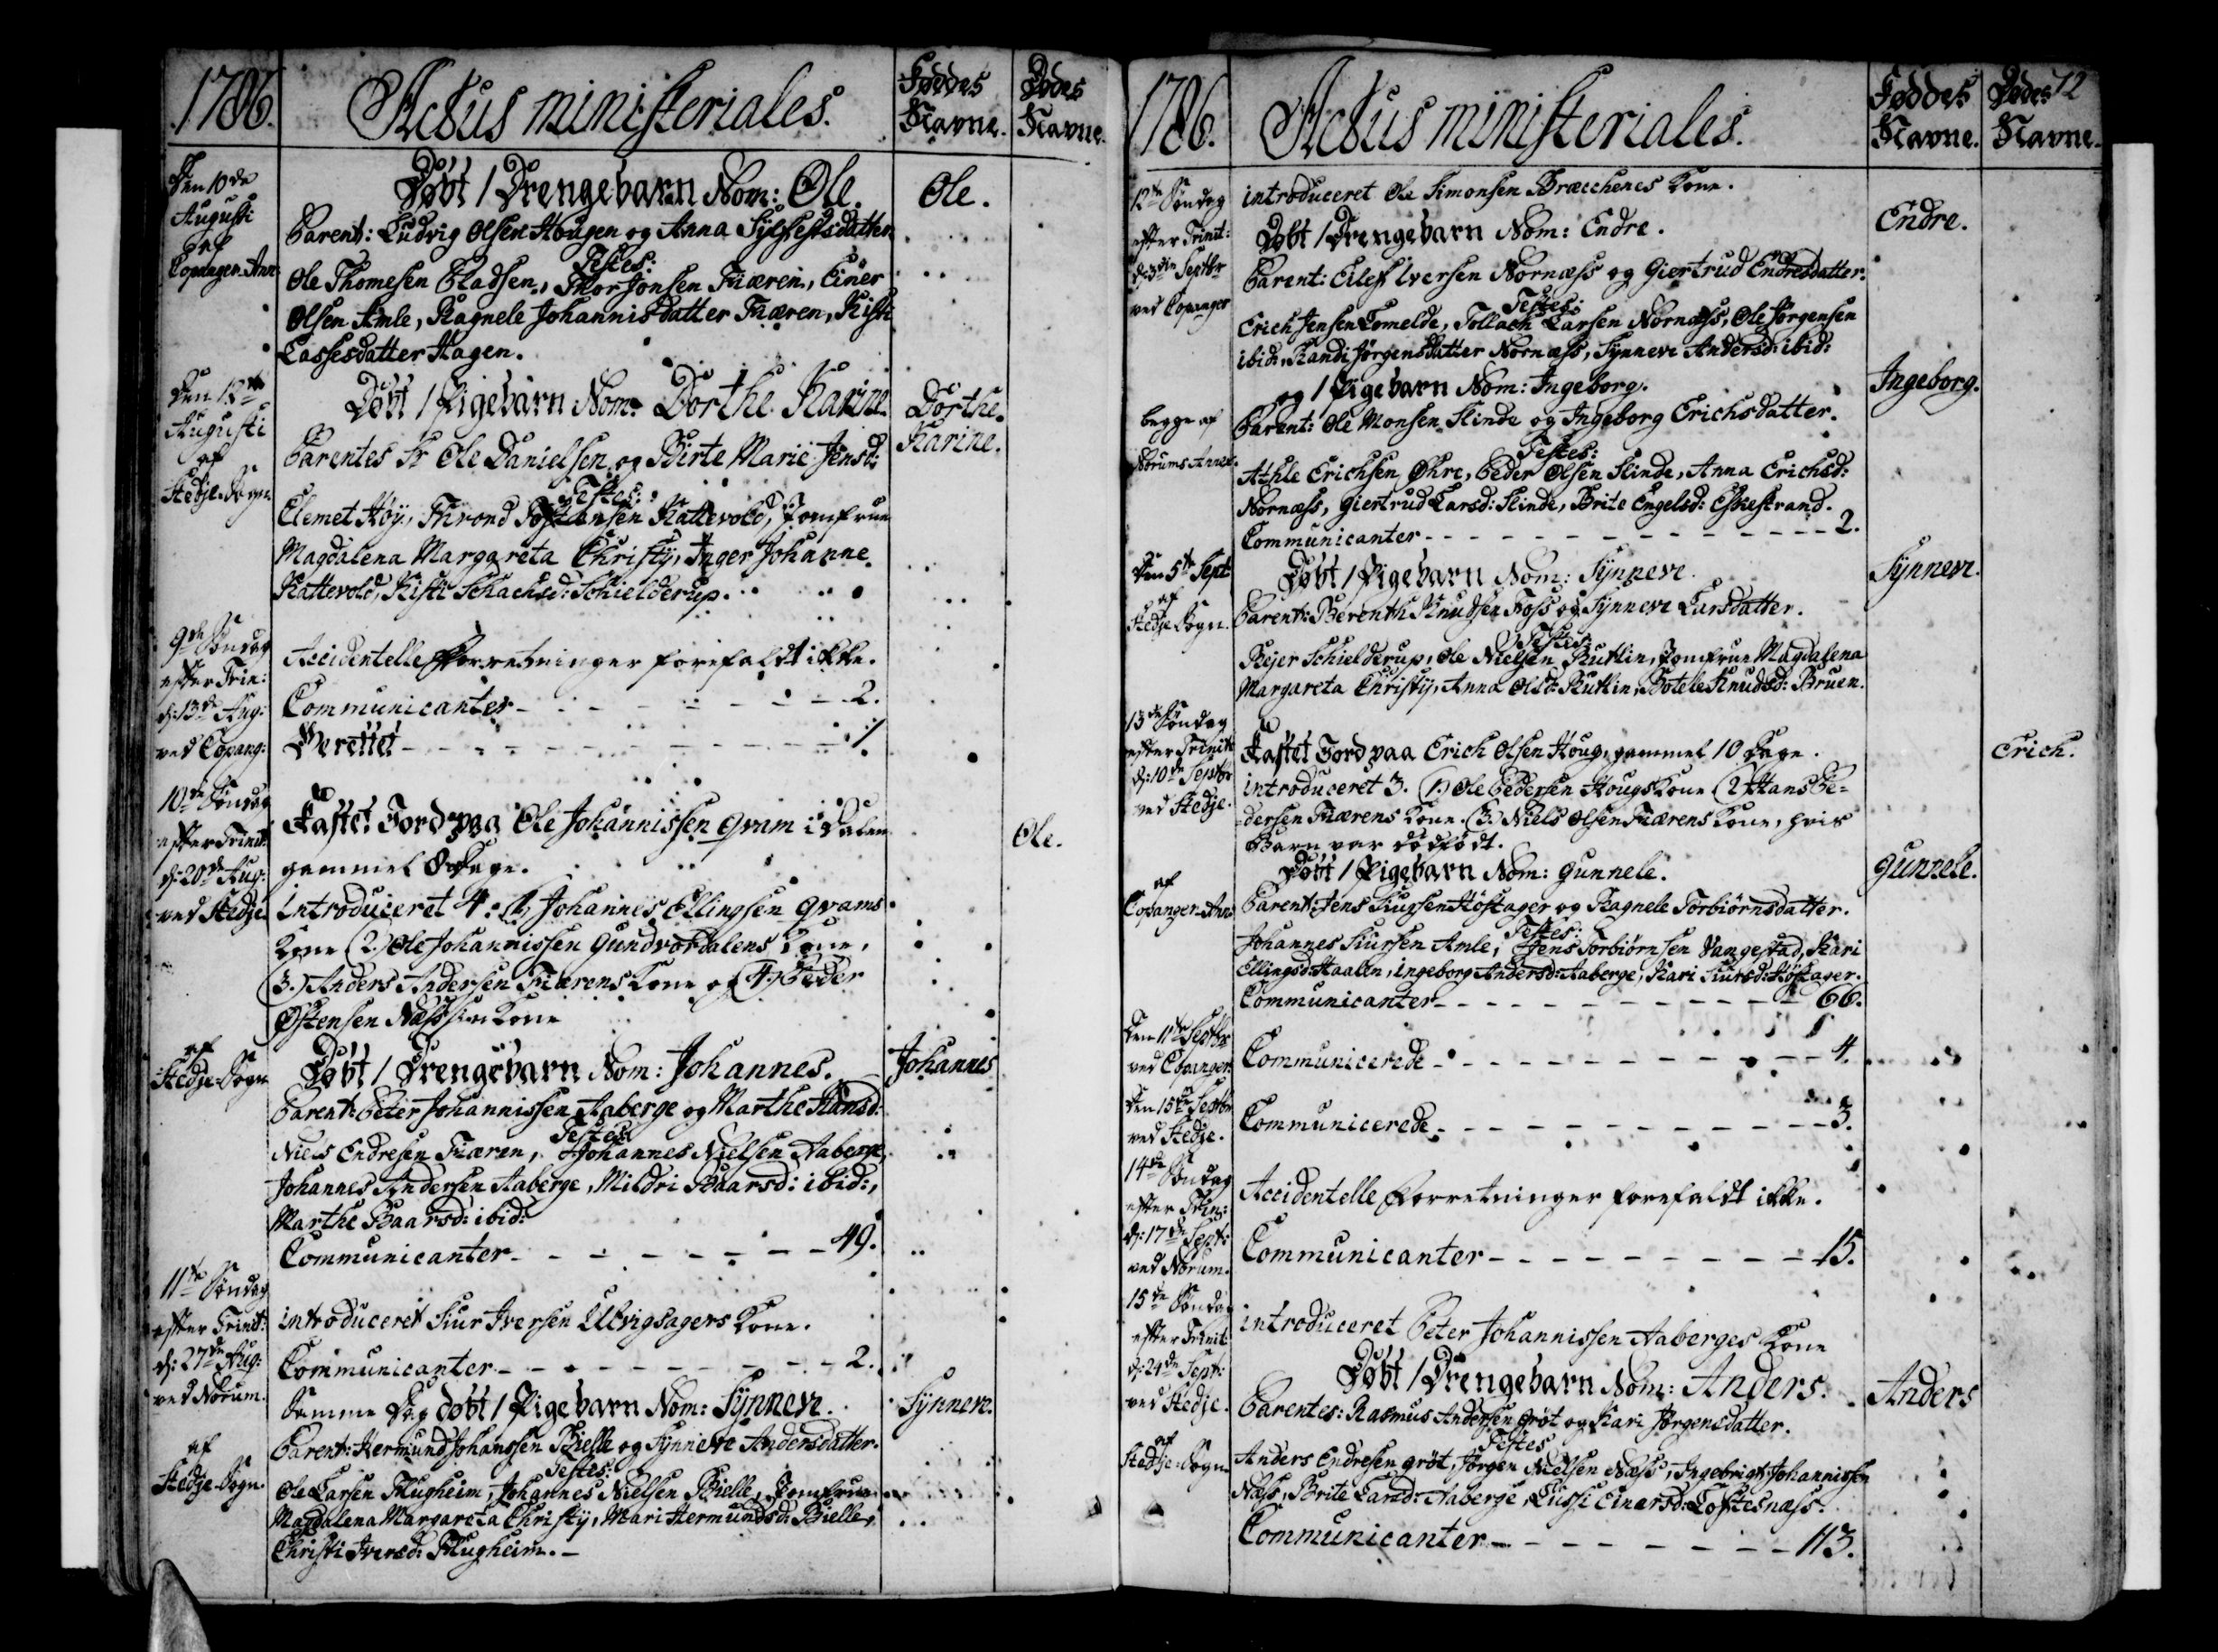 1786.
Actus ministeriales.
Føddes
Navne.
Dødes
Navne.
Den 10de
Augusti
af
Copanger-Anne:
Døbt 1 Drengebarn Nom: Ole.
Ole.
Parent: Ludvig Olsen Hougen og Anna Sylfestsdatter
Testes:
Ole Thomesen Pladsen, Thor Jonsen Fiæren, Einer
Olsen Amle, Ragnele Johannisdatter Fiæren, Kisti
Lassesdatter Hagen.
Den 12te
Augusti
af
Stedje-Sogn
Døbt 1 Pigebarn Nom: Dorthe Karine
Dorthe
Karine.
Parentes Sr Ole Danielsen og Birte Marie Jensd:
Testes:
Clemet Høy, Trond Kattevold, Jomfrue
Magdalena Margareta Christy, Inger Johanne
Kattevold, Kisti Schachsd: Schielderup.
9de Søndag
efter Trin:
d: 13de Aug:
ved Copang:
Accidentelle Forretninger forefaldt ikke.
Communicanter - - - - - - - - 2.
Berettet - - - - - - - - - - - 1.
10de Søndag
efter Trinit:
d: 20de Aug:
ved Stedje
Kastet Jord paa Ole Johannissen Qvam i Dalen
Ole.
gammel 8 Dage.
introduceret 4: (1) Johannes Ellingsen Qvams
Kone (2) Ole Johannissen Gundvordalens Kone,
(3.) Anders Andersen Fiærens Kone og (4.) Peder
Østensen Næss Kone
af
Stedje-Sogn
Døbt 1 Drengebarn Nom: Johannes.
Johannes
Parent: Peter Johannissen Aaberge og Marthe Hansd:
Testes
Niels Endresen Fiæren, Johannes Nielsen Aaberge,
Johannes Andersen Aaberge, Mildri Baarsd: ibid:,
Marthe Baarsd: ibid:
Communicanter - - - - - - - - 49.
11te Søndag
efter Trinit:
d: 27de Aug:
ved Norum.
introduceret Siur Iversen Ulvigsagers Kone.
Communicanter - - - - - - - - - 2.
Samme Dag døbt 1 Pigebarn Nom: Synneve.
Synneve.
af
Stedje-Sogn.
Parent: Hermund Johanssen Bielle og Synneve Andersdatter.
Testes:
Ole Larsen Flugheim, Johannes Nielsen Bielle, Jomfrue
Magdalena Margareta Christy, Mari Hermundsd: Bielle,
Christi Iversd: Flugheim. -
1786.
Actus ministeriales.
Føddes
Navne.
Dødes
Navne.
72
12te Søndag
efter Trinit:
d: 3die Septbr
ved Copanger
introduceret Ole Simonsen Bræcchenes Kone.
Døbt 1 Drengebarn Nom: Endre.
Endre.
Parent: Eilef Iversen Nornæss og Giertrud Endresdatter.
Testes:
Erich Jensen Lomelde, Tollach Larsen Nornæss, Ole Jørgensen
ibid:, Randi Jørgensdatter Nornæss, Synneve Andersd: ibid:
og 1 Pigebarn Nom: Ingeborg.
Ingeborg.
begge af
Norums Annex.
Parent: Ole Monsen Slinde og Ingeborg Erichsdatter.
Testes:
Athle Erichsen Øhre, Peder Olsen Slinde, Anna Erichsd:
Nornæss, Giertrud Larsd: Slinde, Brite Engelsd: Eschestrand.
Communicanter - - - - - - - - - - - - 2.
Den 5te Sept:
af
Stedje Sogn.
Døbt 1 Pigebarn Nom: Synneve.
Synneve.
Parent: Berenth Knudsen Foss og Synneve Larsdatter.
Testes:
Bejer Schielderup, Ole Nielsen Kutlin, Jomfrue Magdalena
Margareta Christy, Anna Olsd: Kutlin, Botele Knudsd: Bruen.
13de Søndag
efter Trinit:
d: 10de Septbr
ved Stedje.
Kastet Jord paa Erich Olsen Houg, gammel 10 Dage.
Erich.
introduceret 3. (1.) Ole Pedersen Hougs Kone (2.) Hans Pe-
dersen Fiærens Kone. (3.) Niels Olsen Fiærens Kone, hvis
Barn var dødfødt.
af
Copanger-Ann:
Døbt 1 Pigebarn Nom: Gunnele.
Gunnele.
Parent: Jens Siugsen Høstager og Ragnele Torbiørnsdatter.
Testes:
Johannes Siursen Amle, Jens Torbiørnsen Vangestad, Kari
Ellingsd: Haalen, Ingeborg Andersd: Aaberge, Kari Siursd: Høstager.
Communicanter - - - - - - - - - - - 66.
Den 11te Septbr
ved Copanger
Communicerede - - - - - - - - - - - 4.
Den 15de Septbr
ved Stedje.
Communicerede - - - - - - - - - - - 3.
14de Søndag
efter Trin:
d: 17de Sept:
ved Norum.
Accidentelle Forretninger forefaldt ikke.
Communicanter - - - - - - - - - - 15.
15de Søndag
efter Trinit:
d: 24de Sept:
ved Stedje.
introduceret Peter Johannissen Aaberges Kone
Døbt 1 Drengebarn Nom: Anders.
Anders
af
Stedje-Sogn
Parentes: Rasmus Andersen Grøt og Kari Jørgensdatter.
Testes
Anders Endresen Grøt, Jørgen Nielsen Næss, Ingebrigt Johannissen
Næss, Brite Larsd: Aaberge, Lussi Einarsd: Loftesnæss.
Communicanter - - - - - - - - - 113.